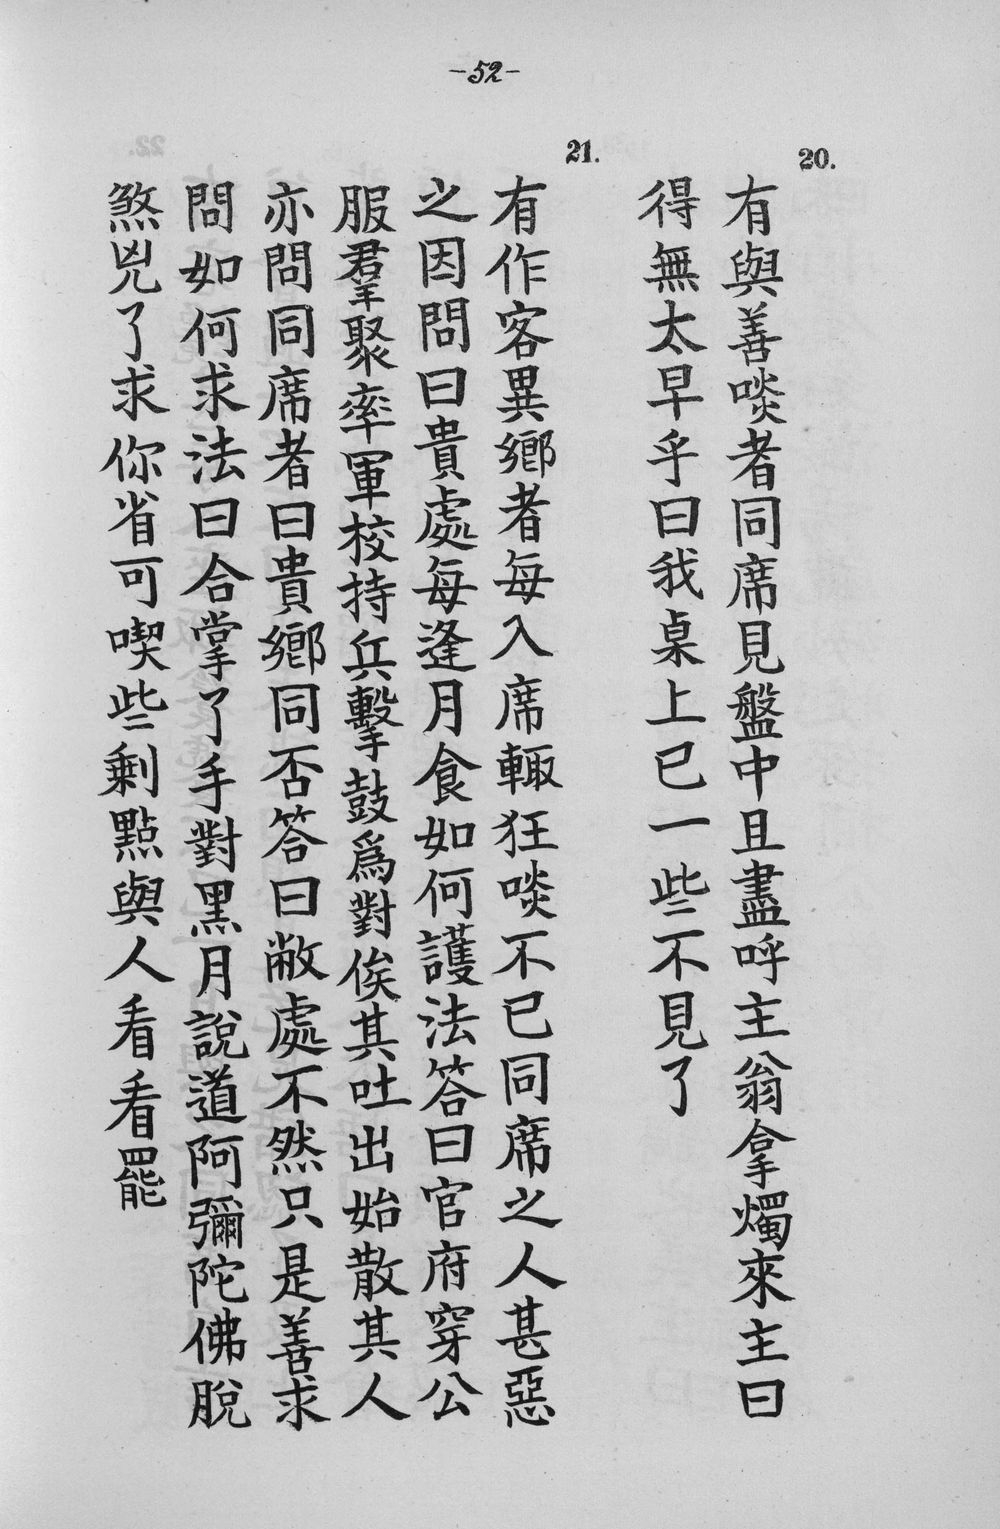 -52-
20.
有與善啖者同席見盤中且盡呼主翁拿燭來主曰
得無太早乎曰我桌上已一些不見了
21.
有作客異鄉者每入席輙狂啖不已同席之人甚惡
之因問曰貴處每逢月食如何護法答曰官府穿公
服羣聚率軍校持兵擊鼓爲對俟其吐出始散其人
亦問同席者曰貴鄉同否答曰敝處不然只是善求
問如何求法曰合掌了手對黑月說道阿彌陀佛脫
煞兇了求你省可喫些剩點與人看看罷